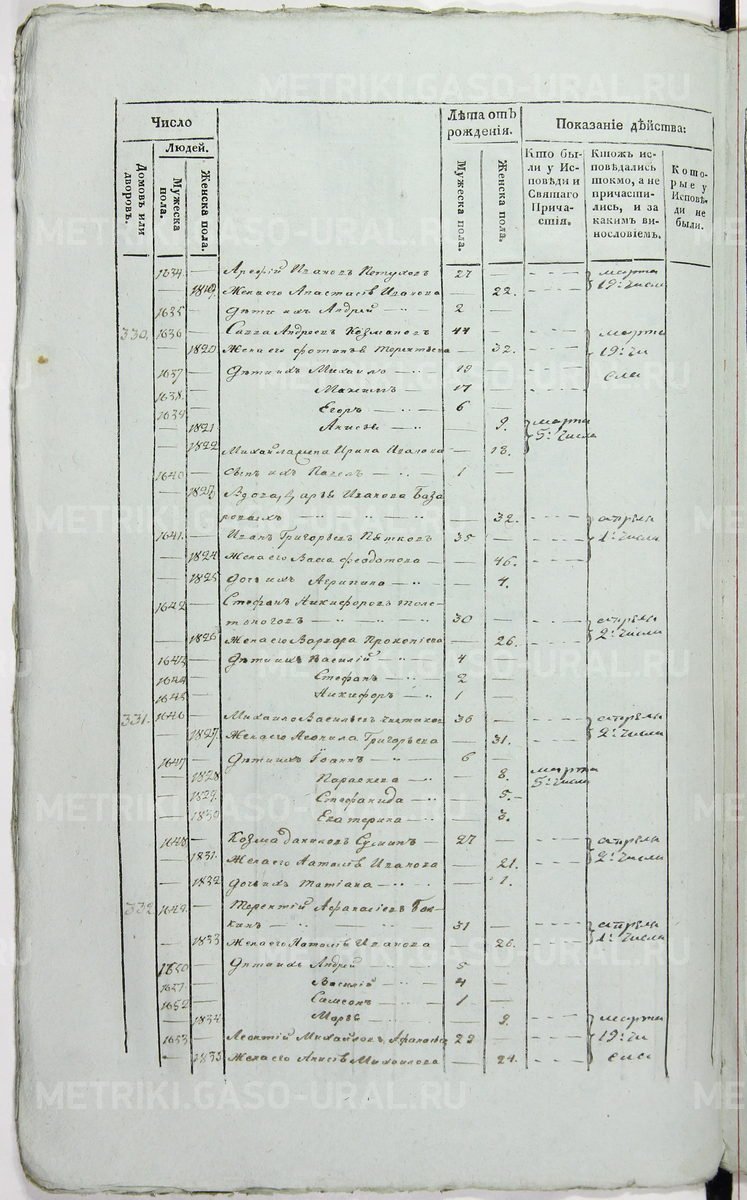 Число
Лѣта отъ рожденія.
Показаніе дѣйства:
Людей.
Домовъ или дворовъ.
Мужеска пола.
Женска пола.
Мужеска пола.
Женска пола.
Кто бы-
ли у Ис-
повѣди и
Святаго
Прича-
стія.
Ктожъ ис-
повѣдались
токмо, а не
причасти-
лись, и за
какимъ ви-
нословіемъ.
Кото-
рые у
Исповѣ-
ди не
были.
1634. Ивановъ Петуховъ 27 марта
1819. Жена его Анастасія Иванова 22. 19: числа
1635 Дѣти ихъ Андрей 2
330. 1636 Савва Андреевъ 44 марта
1820 Жена его Фотинія Терентьева 32. 19: чи
1637 Дѣти ихъ Михаило 19 сла
1638. Максимъ 17
1639 Егоръ 6
1821. Анисья 9. марта
1822 Михайла жена Ирина Иванова 18. 5: числа
1640 Сынъ ихъ Павелъ 1
1823 Вдова Иванова База
ровыхъ 32. апрѣля
1641. Иванъ Григорьевъ Пятковъ 35 1: числа
1824 Жена его Васса Феодотова 46.
1825 Дочь ихъ Агрипина 4.
1642 Стефанъ Никифоровъ Толс-
тоноговъ 30 апрѣля
1826 Жена его Варвара Прокопіева 26. 2: числа
1643 Дѣти ихъ Василій 4
1644 Стефанъ 2
1645 Никифоръ 1
331. 1646 Михаило Васильевъ 36 апрѣля
1827 Жена его Леонила Григорьева 31. 2: числа
1647 Дѣти ихъ Іоаннъ 6
1828 Параскева 8. марта
1829. Стефанида 5. 5: числа
1830 Екатерина 3.
1648 Козма 27 апрѣля
1831. Жена его Наталія Иванова 21. 2: числа
1832 Дочь ихъ Татіана 1.
332 1649. Терентій Афанасіевъ
31 апрѣля
1833 Жена его Наталія Иванова 26. 1: числа
1650 Дѣти ихъ Андрей 5
1651 Василій 4
1652 Самсонъ 1
1834 Марѳа 9. марта
1653 Леонтій Михайловъ 23 19: чи
1835 Жена его Анисія Михайлова 24. сла
METRIKI.GASO-URAL.RU